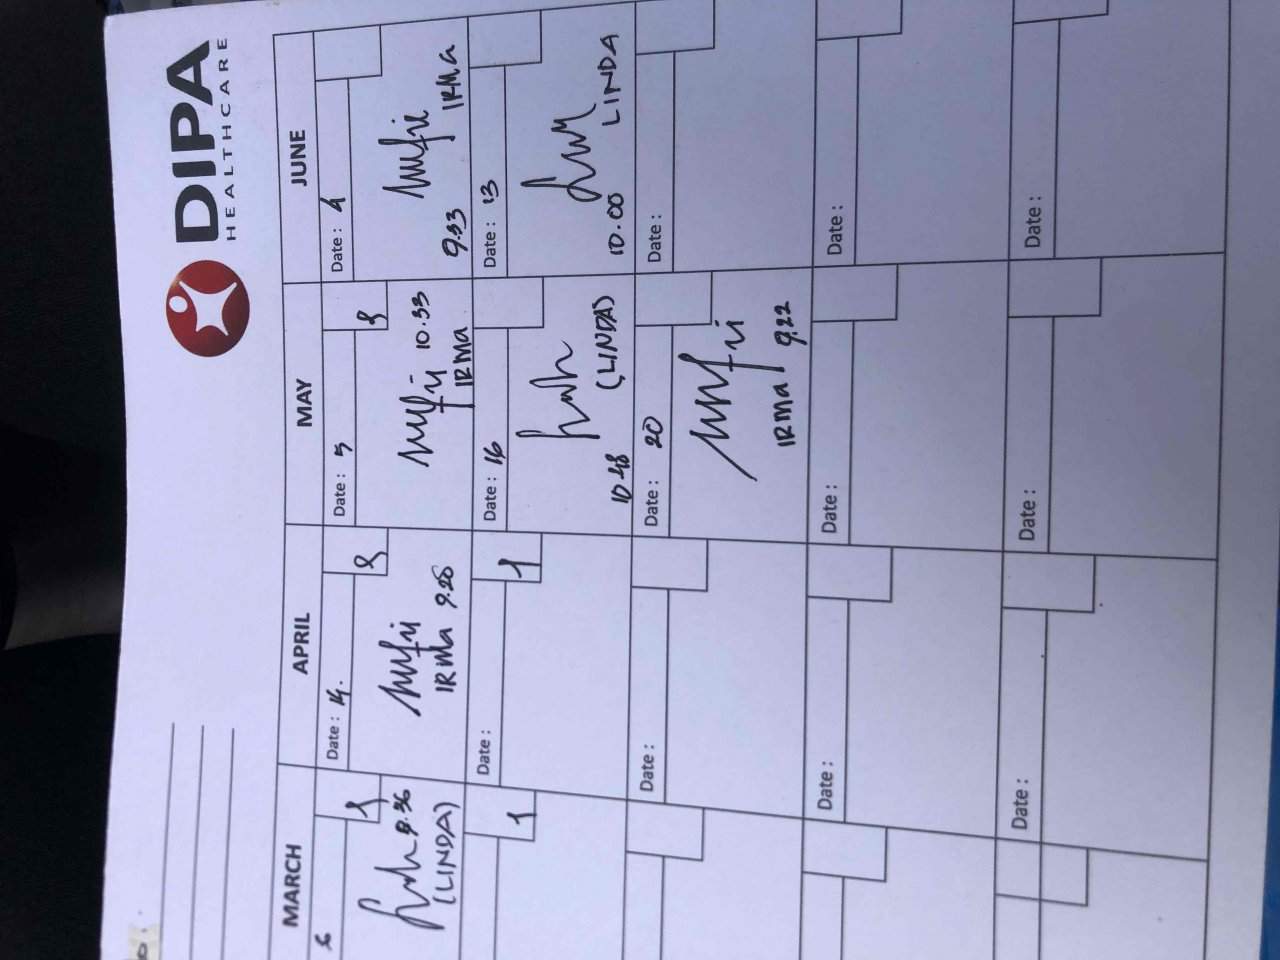 DIPA
HEALTHCARE
MARCH
APRIL
MAY
JUNE
6
Date : 14.
Date : 5
Date : 4
9.36
(LINDA)
IRMA 9.20
10.33
IRMA
9.33
IRMA
Date :
Date : 16
Date : 13
10.48
(LINDA)
10.00
LINDA
Date :
Date : 20
Date :
IRMA 9.22
Date :
Date :
Date :
Date :
Date :
Date :